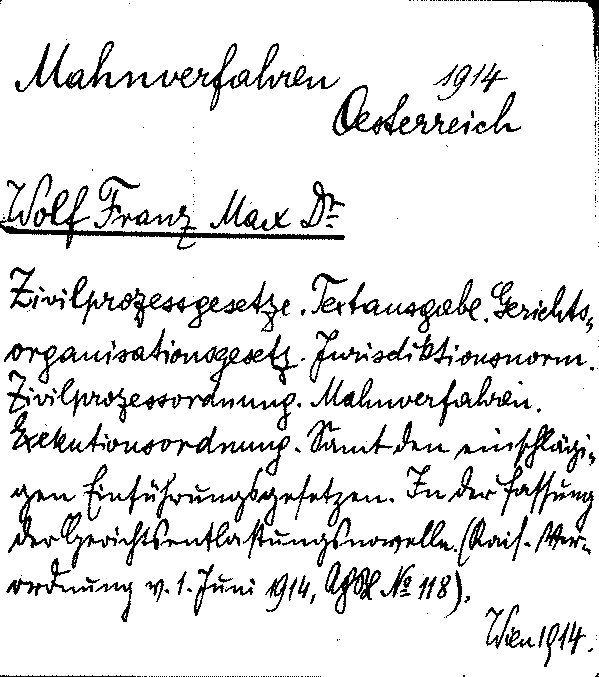 Mahnverfahren 1914
Oesterreich
Wolf Franz Max Dr.
Zivilprozessgesetze. Textausgabe. Gerichts-
organisationsgesetz. Jurisdiktionsnorm.
Zivilprozessordnung. Mahnverfahren.
Exekutionsordnung. Samt den einschlägi-
gen Einführungsgesetzen. In der Fassung
der Gerichtsentlastungsnovelle. (Kais. Ver-
ordnung v. 1. Juni 1914, RGBl No 118).
Wien 1914.